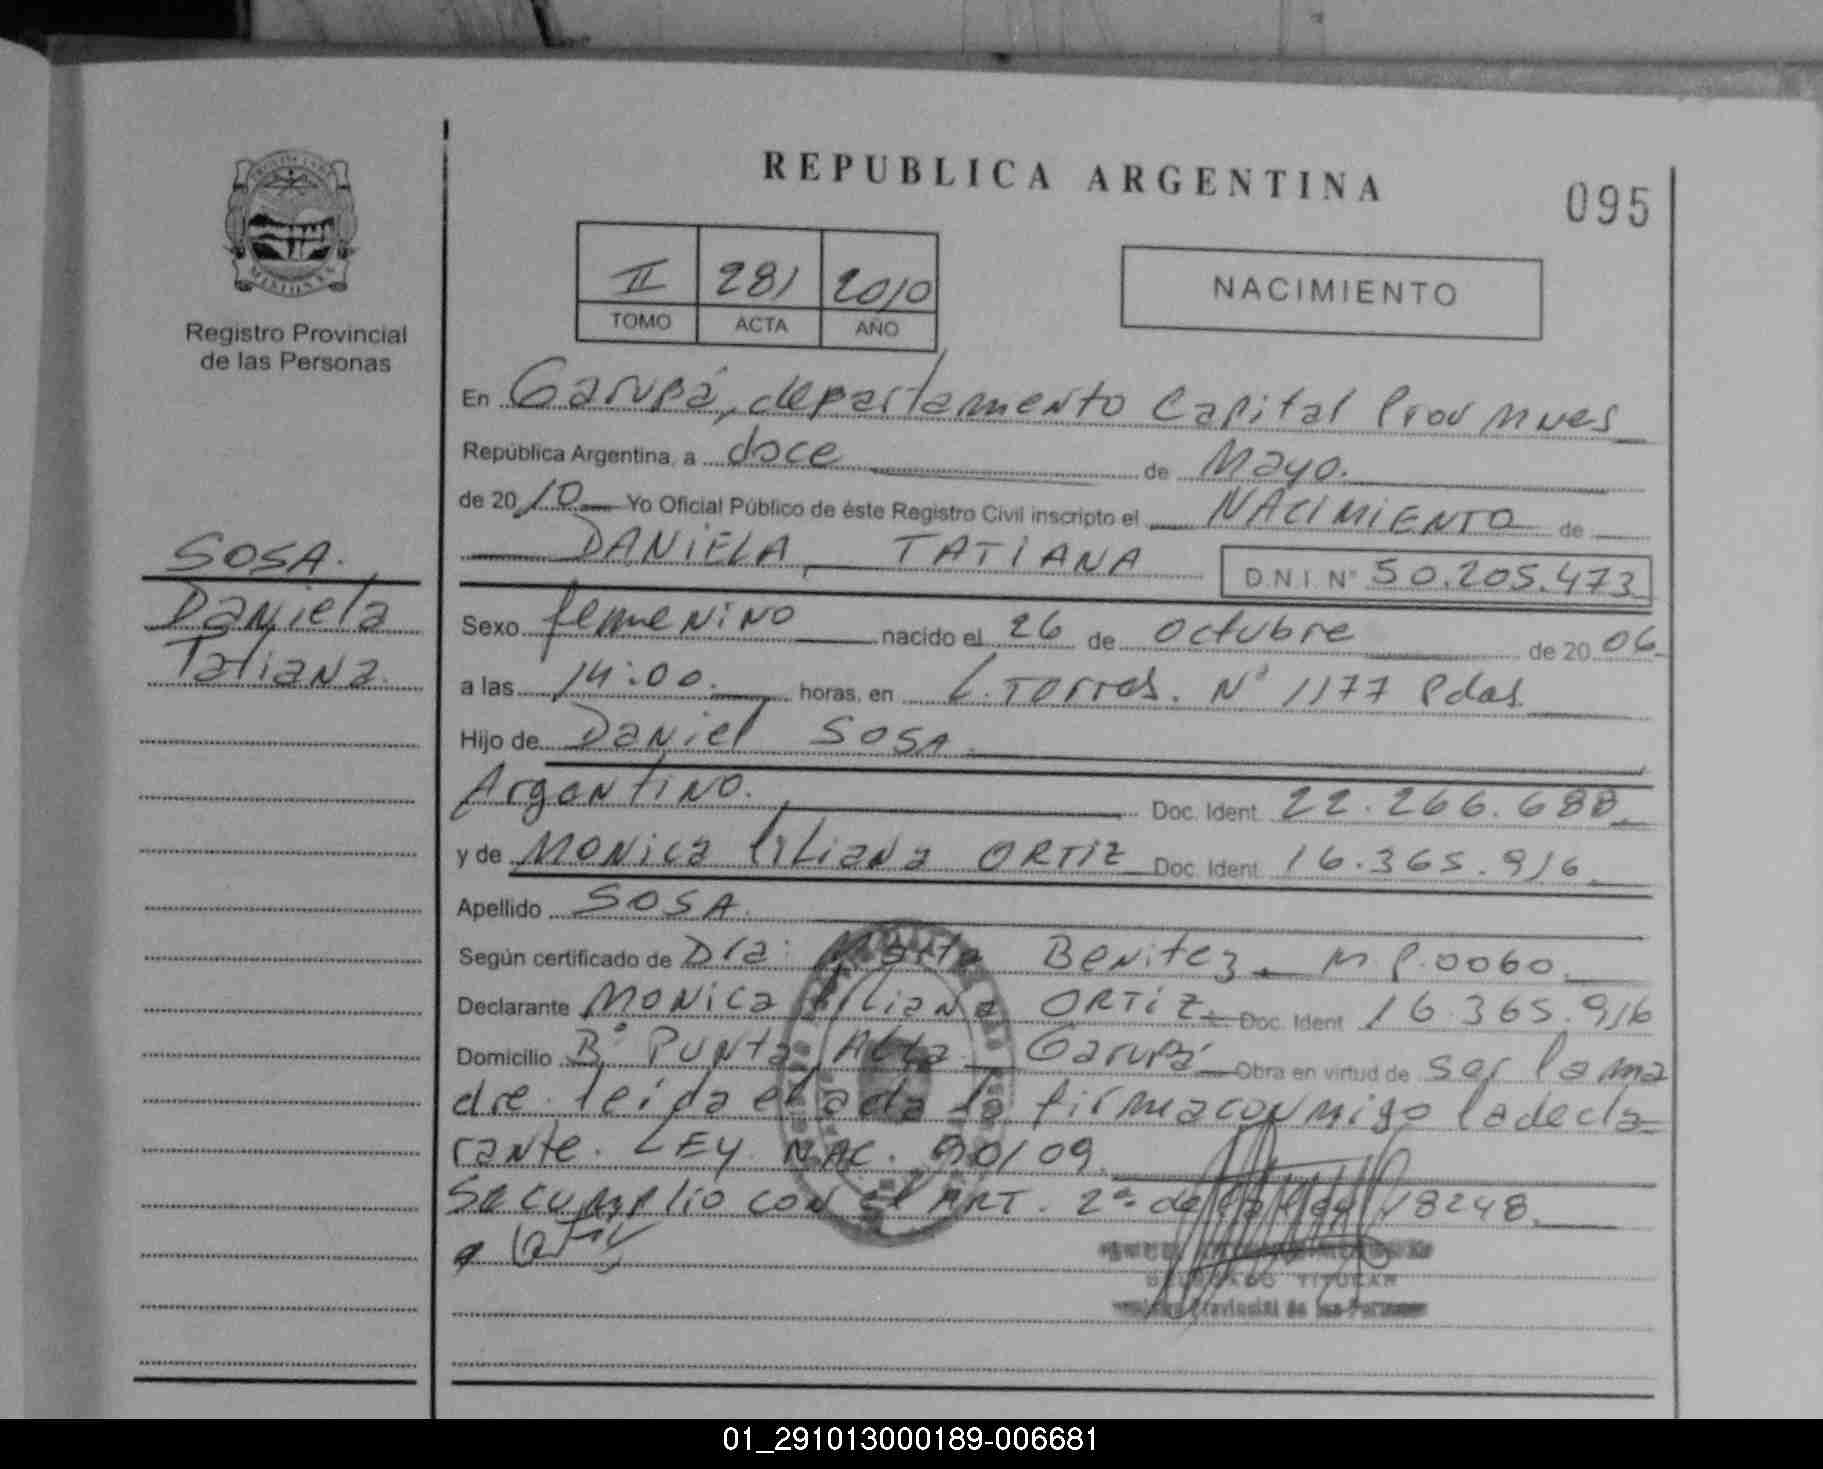 REPUBLICA ARGENTINA
095
MISIONES
Registro Provincial
de las Personas
II 281 2010
TOMO ACTA AÑO
NACIMIENTO
SOSA.
Daniela
Tatiana.
En Garupá, departamento Capital Prov Mnes
República Argentina, a doce de Mayo.
de 2010 Yo Oficial Público de éste Registro Civil inscripto el NACIMIENTO de
DANIELA, TATIANA D.N.I. N° 50.205.473
Sexo femenino nacido el 26 de octubre de 2006
a las 14:00. horas, en L. Torres. N° 1177 Pdas
Hijo de Daniel SOSA.
Argentino. Doc. Ident. 22.266.688
y de MONICA liliana ORTIZ Doc. Ident. 16.365.916
Apellido SOSA.
Según certificado de Dra: Marta Benitez M.P.0060.
Declarante MONICA liliana ORTIZ Doc. Ident 16.365.916
Domicilio B° PUNTA Alta Garupá Obra en virtud de ser la ma
dre. leída el acta la firma conmigo la decla=
rante. LEY. NAC. 90/09.
Se cumplio con el ART. 2° de la Ley 18248.
DELEGADO TITULAR
Provincial de las Personas
01_291013000189-006681